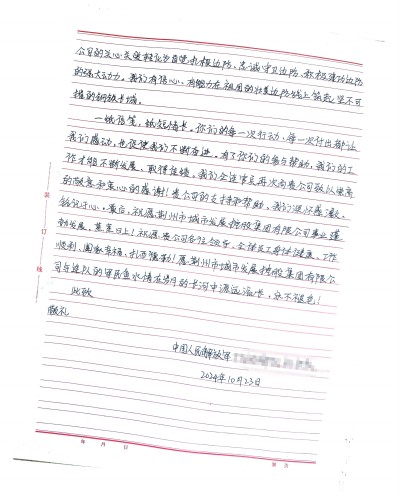 公司的关心关爱转化为自觉扎根边防、忠诚守卫边防、积极建功边防
的强大动力。我们有信心、有能力在祖国的北疆边防线上筑起坚不可
摧的钢铁长城。
一纸信笺，纸短情长。你们的每一次行动、每一次付出都让
我们感动，也促使我们不断奋进。有了你们的鼎力帮助，我们的工
作才能不断发展、取得佳绩。我们全连官兵再次向贵公司致以崇高
的敬意和衷心的感谢！贵公司的支持和帮助，我们深怀感激、
铭记于心。最后，祝愿荆州市城市发展控股集团有限公司事业蓬
勃发展，蒸蒸日上！祝愿贵公司各位领导、全体员工身体健康、工作
顺利、阖家幸福、扎西德勒！愿荆州市城市发展控股集团有限公
司与连队的军民鱼水情在岁月的长河中源远流长，永不褪色！
此致
敬礼
中国人民解放军
2024年10月23日
装
订
线
年 月 日
第 页